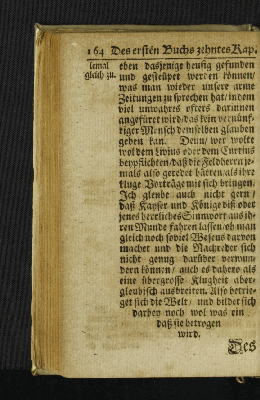 164 Des ersten Buchs zehntes Kap.
semal
gleich zu.
eben dasjenige heufig gefunden
und gesteupet werden können/
was man wieder unsere arme
Zeitungen zu sprechen hat/ indem
viel unwahres öfters darinnen
angeführet wird/ das kein vernünf-
tiger Mensch demselben glauben
geben kan. Denn/ wer wolte
wol dem Livius oder dem Curtius
beypflichten/ daß die Feldherrn je-
mals also geredet hätten/ als ihre
kluge Vorträge mit sich bringen.
Ich glenbe auch nicht gern/
daß Kayser und Könige diß oder
jenes herrliches Sinnwort aus ih-
ren Munde fahren lassen/ ob man
gleich noch soviel Wesens davon
machet und die Nachreder sich
nicht genug darüber verwun-
dern können/ auch es dahero als
eine übergrosse Klugheit aber-
gleubisch ausbreiten. Also betrie-
get sich die Welt/ und bildet sich
darbey noch wol was ein
daß sie betrogen
wird.
Des